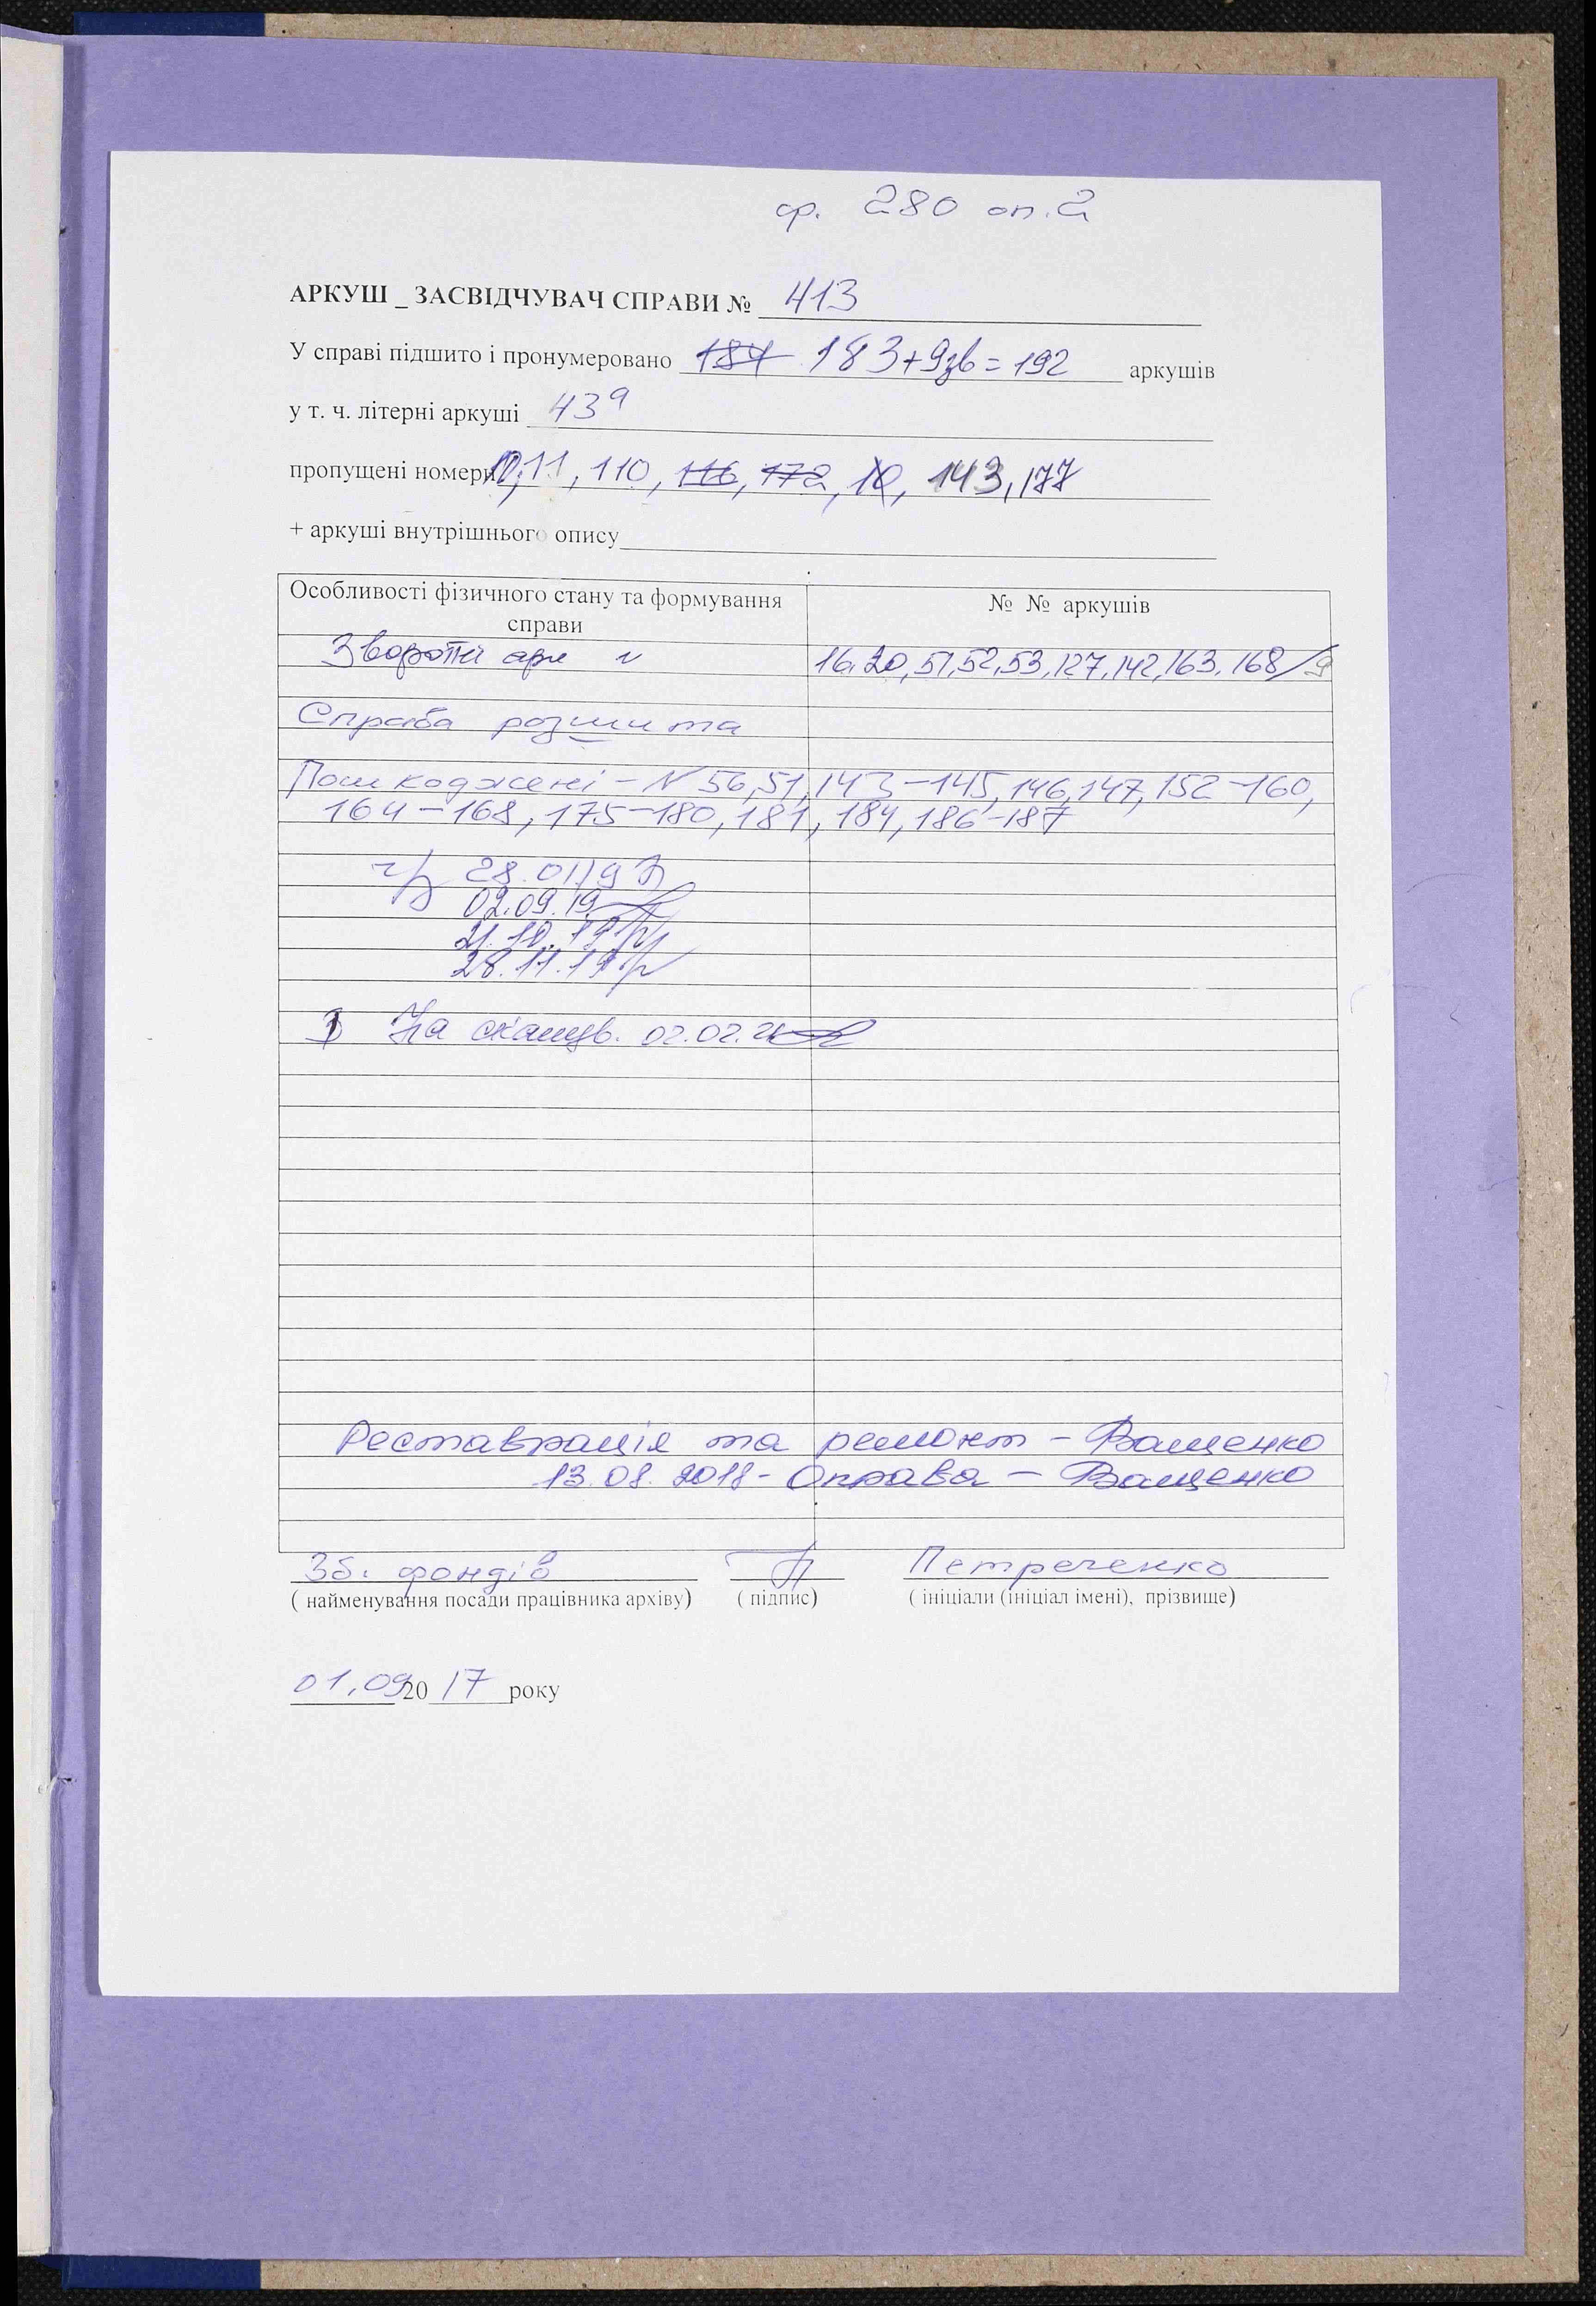 ф. 280 оп. 2
АРКУШ _ ЗАСВІДЧУВАЧ СПРАВИ № 413
У справі підшито і пронумеровано 184 183+9зв = 192 аркушів
у т. ч. літерні аркуші 43а
пропущені номери 11, 110, 116, 172, 10, 143, 177
+ аркуші внутрішнього опису
Особливості фізичного стану та формування справи
№ № аркушів
Зворотні арк 16, 20, 51, 52, 53, 127, 142, 163, 168/9
Справа розшита
Пошкоджені - N 56, 51, 143-145, 146, 147, 152-160,
164-168, 175-180, 181, 184, 186-187
28.01.19
02.09.19
21.10.19
28.11.19
На сканув. 02.02.21
Реставрація та ремонт - Ващенко
13.08.2018 - Оправа - Ващенко
Зб. фондів Петреченко
( найменування посади працівника архіву) ( підпис) ( ініціали (ініціал імені), прізвище)
01.09 20 17 року